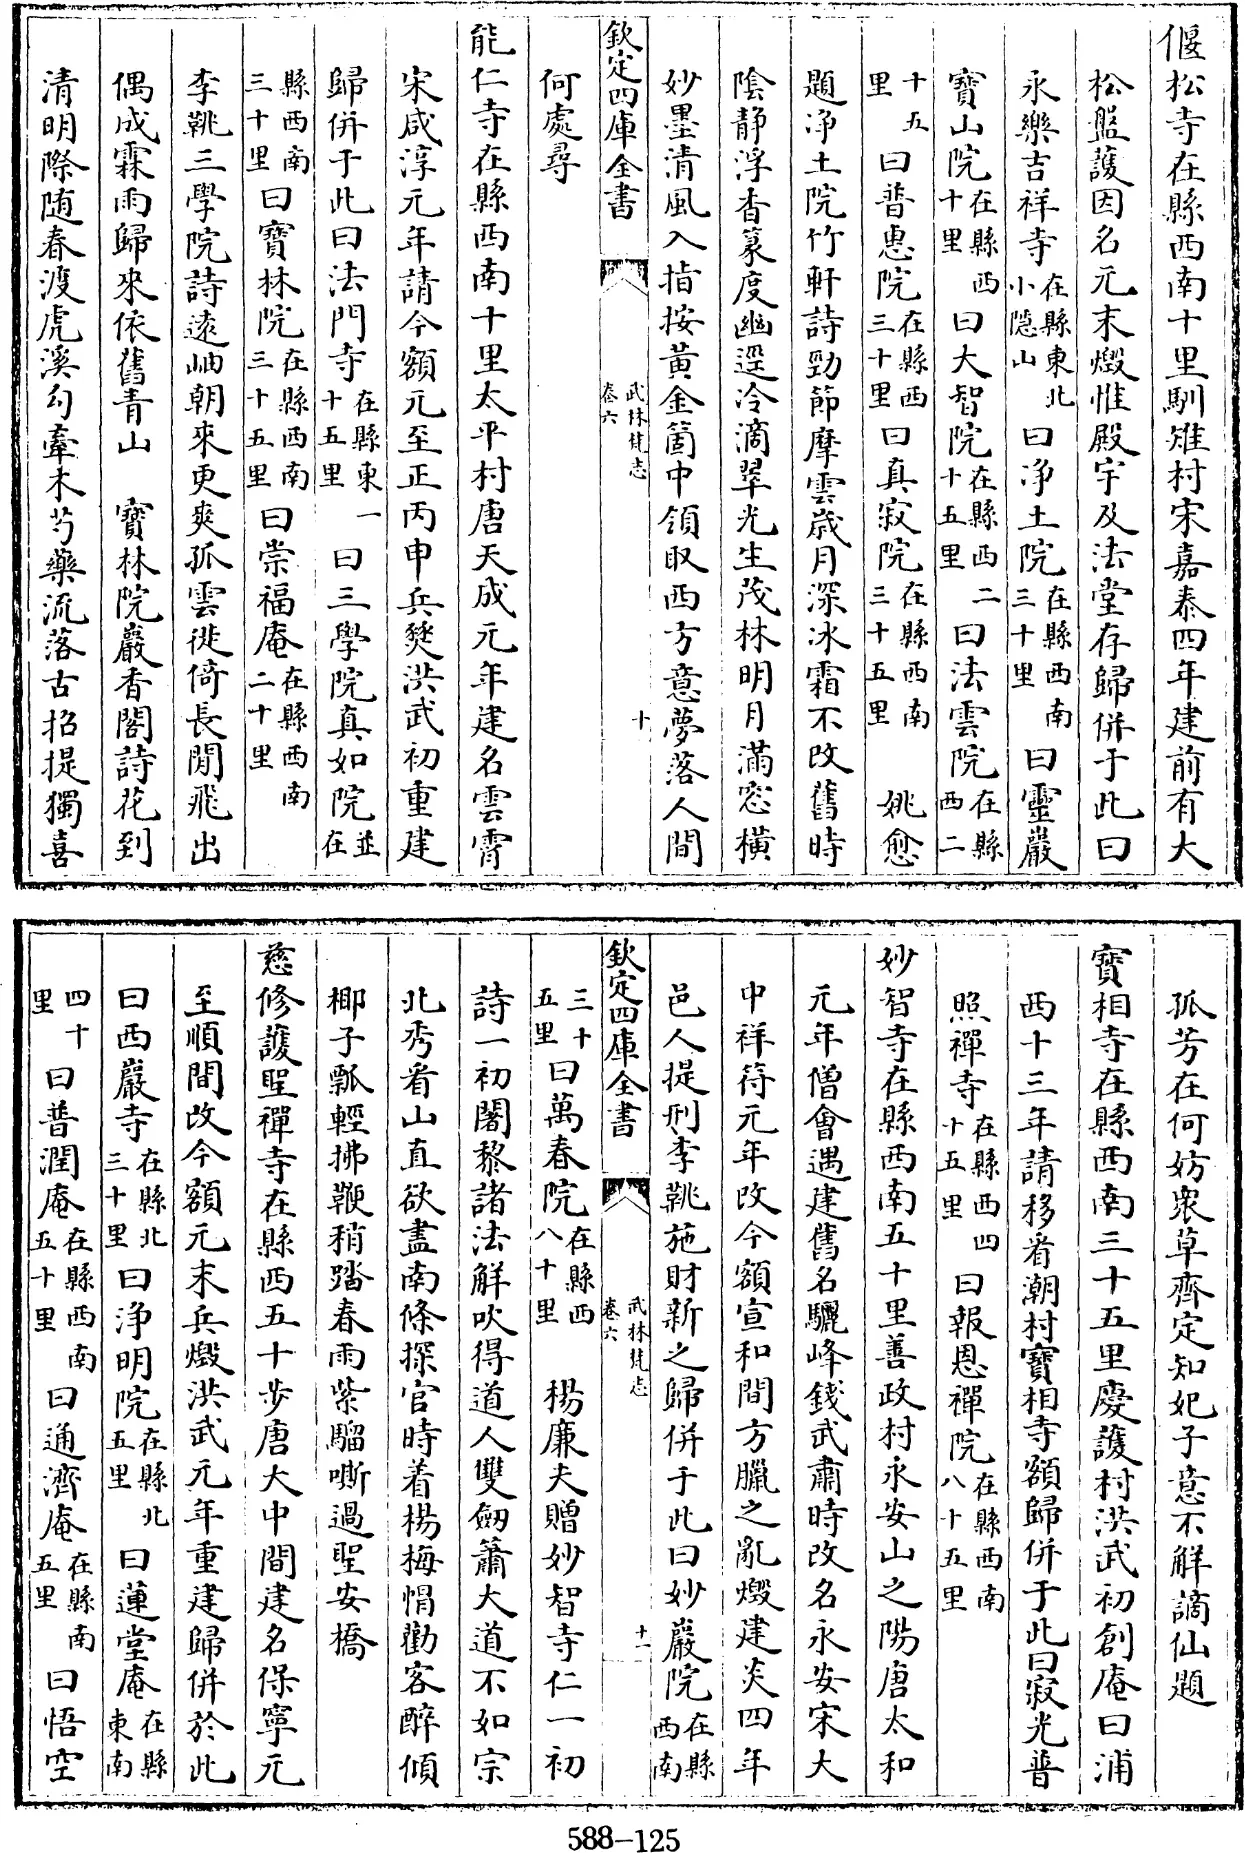 偃松寺在縣西南十里馴雉村宋嘉泰四年建前有大
松盤護因名元末燬惟殿宇及法堂存歸併于此曰
永樂吉祥寺在縣東北小隱山曰淨土院在縣西南三十里曰靈巖
寶山院在縣西十里曰大智院在縣西二十五里曰法雲院在縣西二
十五里曰普惠院在縣西三十里曰真寂院在縣西南三十五里 姚愈
題淨土院竹軒詩勁節摩雲歲月深冰霜不改舊時
陰靜浮香篆度幽逕冷滴翠光生茂林明月滿窓橫
妙墨清風入指按黃金箇中領取西方意夢落人間
欽定四庫全書 武林梵志 卷六 十
何處尋
能仁寺在縣西南十里太平村唐天成元年建名雲霄
宋咸淳元年請今額元至正丙申兵燹洪武初重建
歸併于此曰法門寺在縣東一十五里曰三學院真如院並在
縣西南三十里曰寶林院在縣西南三十五里曰崇福庵在縣西南二十里
李鼗三學院詩遠岫朝來更爽孤雲徙倚長閒飛出
偶成霖雨歸來依舊青山 寶林院巖香閣詩花到
清明際隨春渡虎溪勾牽木芍藥流落古招提獨喜
孤芳在何妨衆草齊定知妃子意不解謫仙題
寶相寺在縣西南三十五里慶護村洪武初創庵曰浦
西十三年請移㸔潮村寶相寺額歸併于此曰寂光普
照禪寺在縣西四十五里曰報恩禪院在縣西南八十五里
妙智寺在縣西南五十里善政村永安山之陽唐太和
元年僧會遇建舊名驪峰錢武肅時改名永安宋大
中祥符元年改今額宣和間方臘之亂燬建炎四年
邑人提刑李鼗施財新之歸併于此曰妙嚴院在縣西南
欽定四庫全書 武林梵志 卷六 十一
三十五里曰萬春院在縣西八十里 楊廉夫贈妙智寺仁一初
詩一初闍黎諸法解吹得道人雙劒簫大道不如宗
北秀㸔山直欲盡南條探官時着楊梅㡌勸客醉傾
椰子瓢輕拂鞭稍踏春雨紫騮嘶過聖安橋
慈修護聖禪寺在縣西五十步唐大中間建名保寧元
至順間改今額元末兵燬洪武元年重建歸併於此
曰西巖寺在縣北三十里曰淨明院在縣北五里曰蓮堂庵在縣東南
四十里曰普潤庵在縣西南五十里曰通濟庵在縣南五里曰悟空
588-125